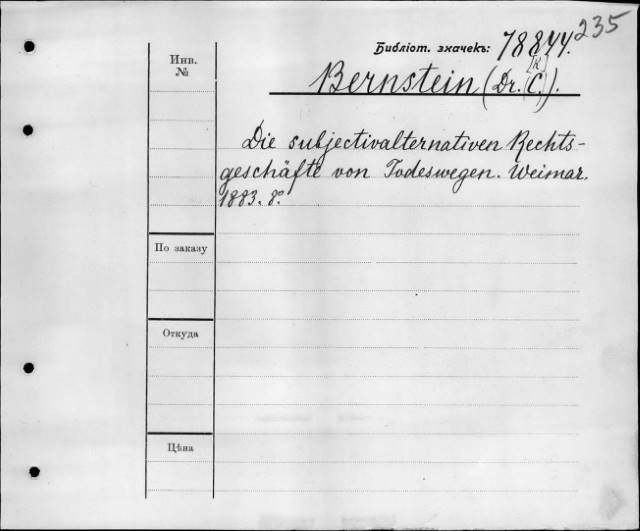 235
Библіот. значекъ: 78844.
[K]
Bernstein (Dr. C.).
Инв.
№
Die subjectivalternativen Rechts-
geschäfte von Todeswegen. Weimar.
1883. 8º.
По заказу
Откуда
Цѣна